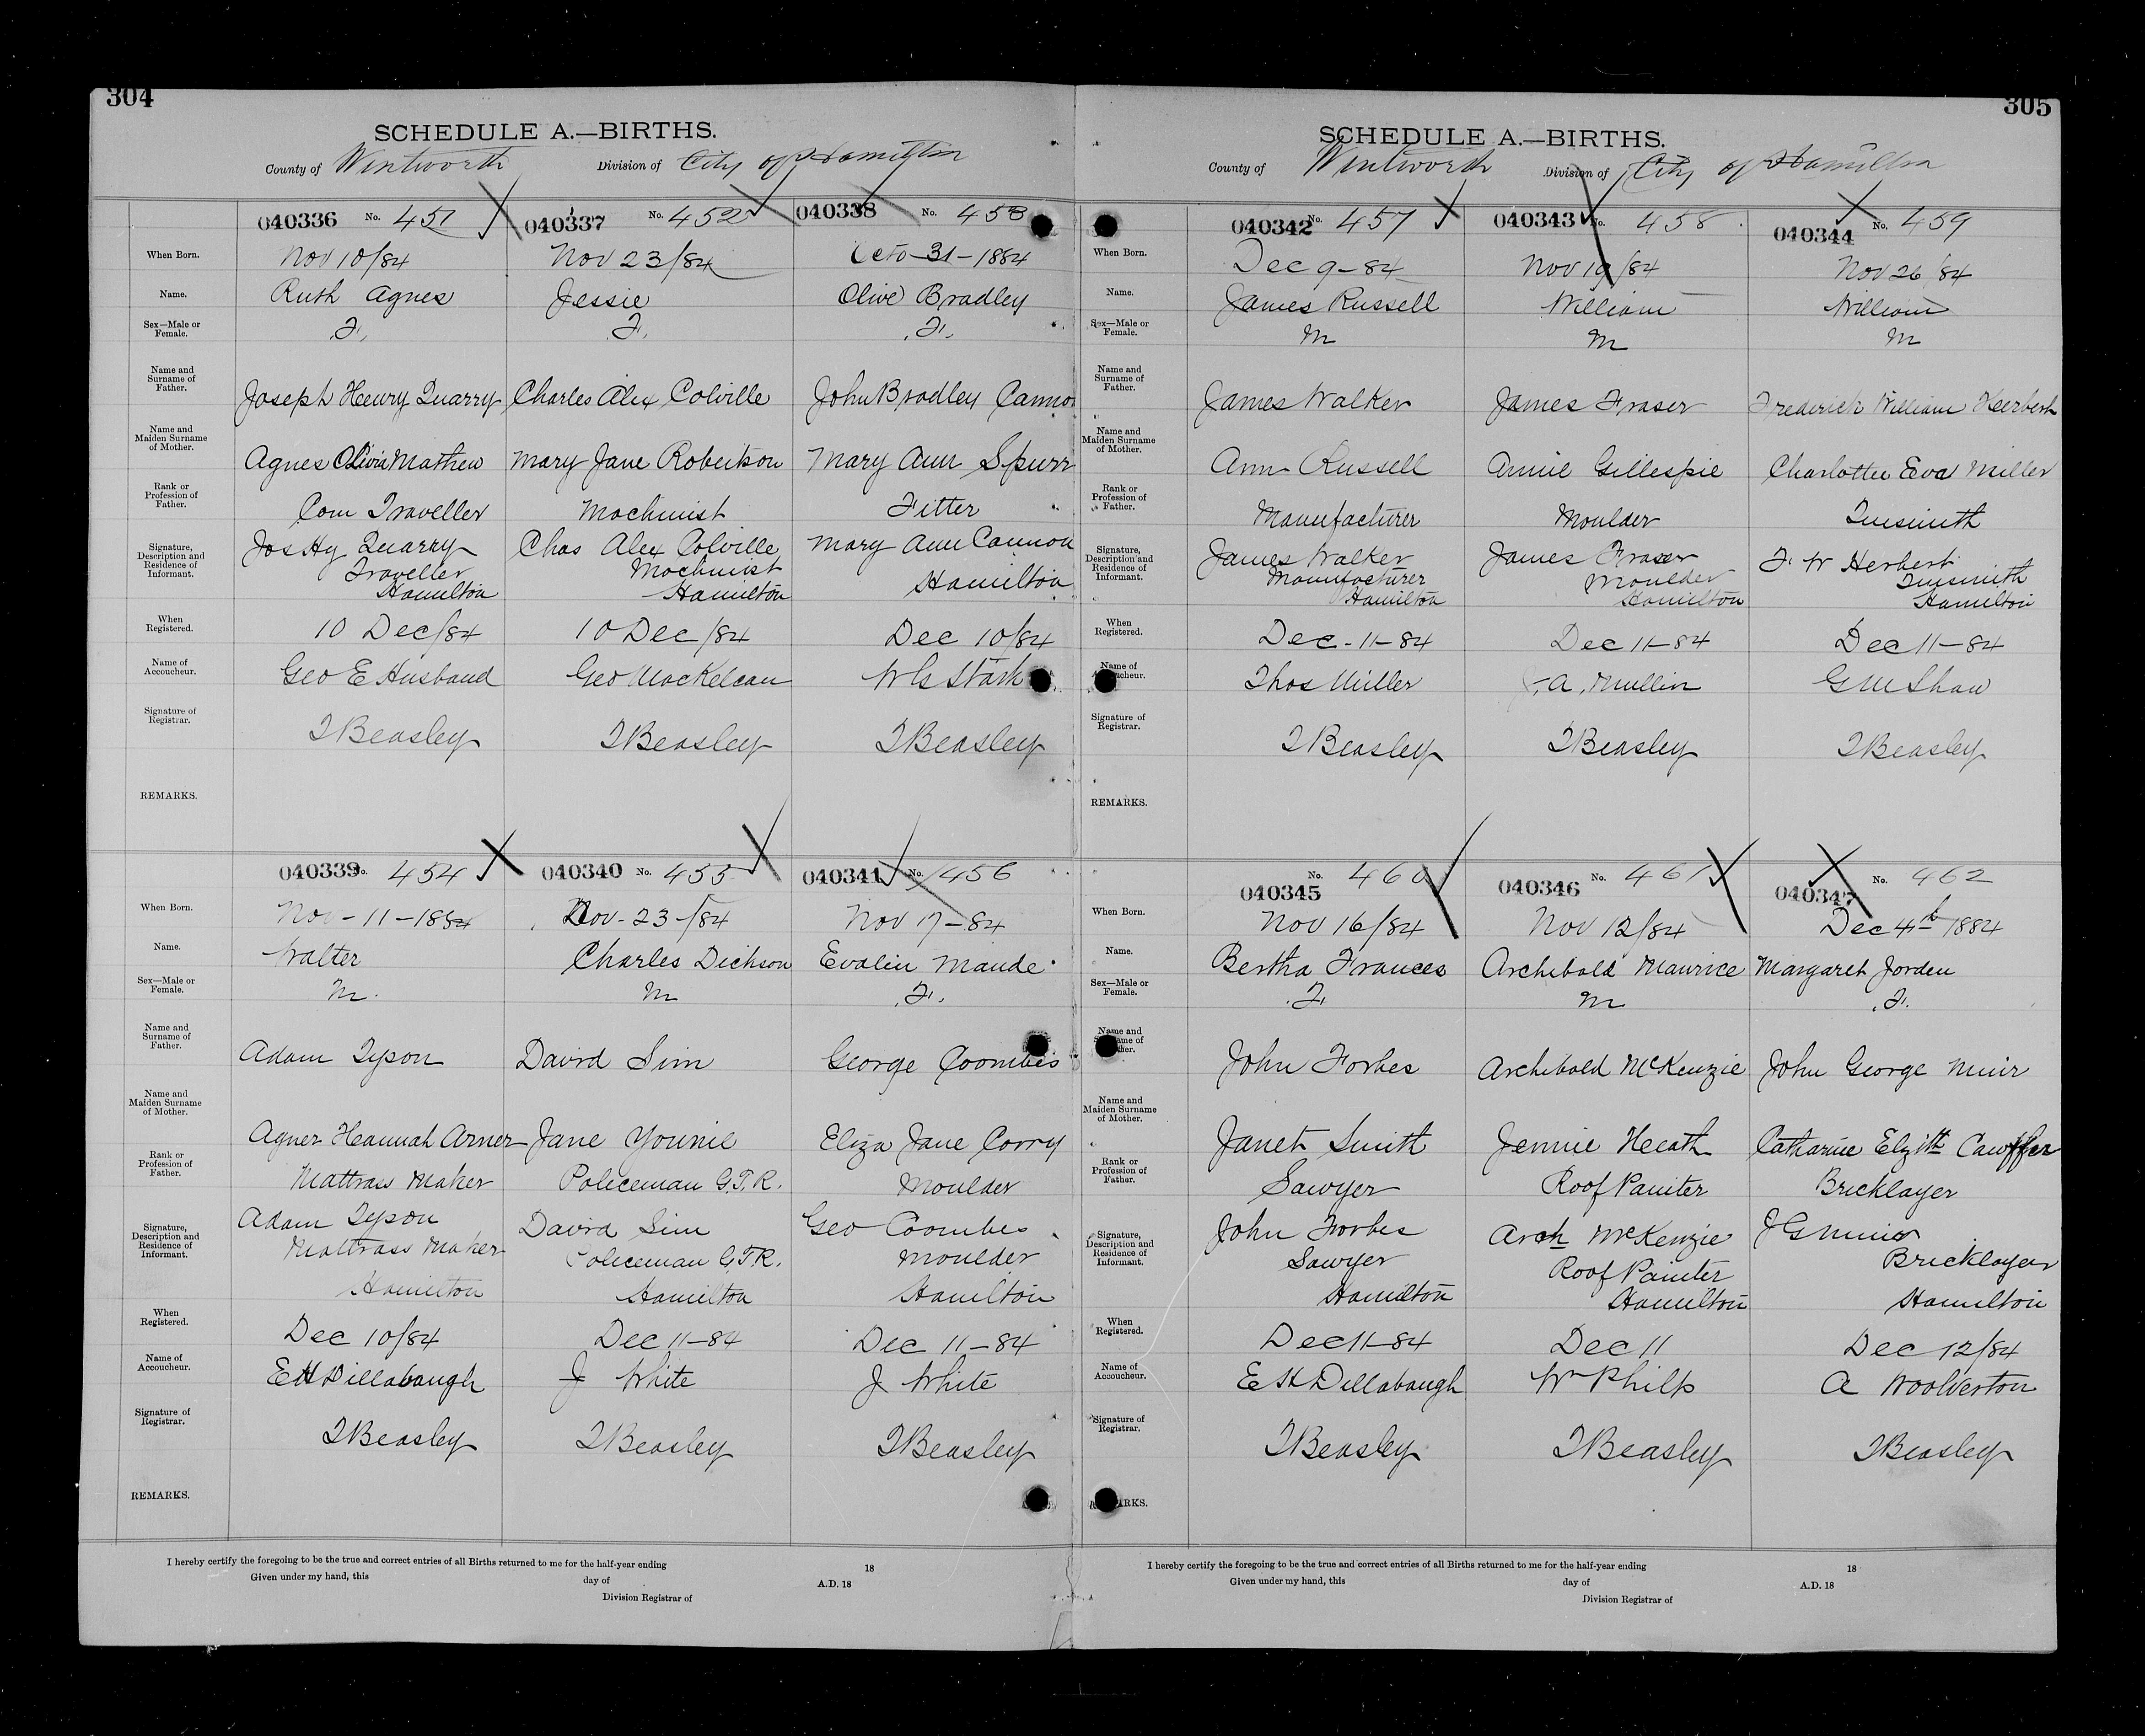 304
SCHEDULE A.—BIRTHS.
County of Wentworth Division of City of Hamilton
040336 No. 451 040337 No. 452 040338 No. 453
When Born. Nov 10/84 Nov 23/84 Octo-31-1884
Name. Ruth Agnes Jessie Olive Bradley
Sex—Male or Female. F. F. F.
Name and Surname of Father. Joseph Henry Quarry Charles Alex Colville John Bradley Cannon
Name and Maiden Surname of Mother. Agnes Olivia Mathew Mary Jane Robertson Mary Ann Spurr
Rank or Profession of Father. Com Traveller Machinist Fitter
Signature, Description and Residence of Informant. Jos Hy Quarry Traveller Hamilton Chas Alex Colville Machinist Hamilton Mary Ann Cannon Hamilton
When Registered. 10 Dec/84 10 Dec/84 Dec 10/84
Name of Accoucheur. Geo E Husband Geo Mackelcan Stark
Signature of Registrar. T Beasley T Beasley T Beasley
REMARKS.
040339 No. 454 040340 No. 455 040341 No. 456
When Born. Nov-11-1884 Nov-23-/84 Nov 17-84
Name. Walter Charles Dickson Evalin Maude
Sex—Male or Female. M. M F.
Name and Surname of Father. Adam Tyson David Sim George Coombes
Name and Maiden Surname of Mother. Agnes Hannah Arner Jane Younie Eliza Jane Corry
Rank or Profession of Father. Mattrass Maker Policeman G.T.R. Moulder
Signature, Description and Residence of Informant. Adam Tyson Mattrass Maker Hamilton David Sim Policeman G.T.R. Hamilton Geo Coombes Moulder Hamilton
When Registered. Dec 10/84 Dec 11-84 Dec 11-84
Name of Accoucheur. E H Dillabaugh J White J White
Signature of Registrar. T Beasley T Beasley T Beasley
REMARKS.
I hereby certify the foregoing to be the true and correct entries of all Births returned to me for the half-year ending 18
Given under my hand, this day of A.D. 18
Division Registrar of
305
SCHEDULE A.—BIRTHS.
County of Wentworth Division of City of Hamilton
040342 No. 457 040343 No. 458 040344 No. 459
When Born. Dec 9-84 Nov 19/84 Nov 26/84
Name. James Russell William William
Sex—Male or Female. M M M
Name and Surname of Father. James Walker James Fraser Frederick William Herbert
Name and Maiden Surname of Mother. Ann Russell Annie Gillespie Charlotte Eva Miller
Rank or Profession of Father. Manufacturer Moulder Tinsmith
Signature, Description and Residence of Informant. James Walker Manufacturer Hamilton James Fraser Moulder Hamilton F. W Herbert Tinsmith Hamilton
When Registered. Dec-11-84 Dec 11-84 Dec 11-84
Name of Accoucheur. Thos Miller A. Mullin G M Shaw
Signature of Registrar. T Beasley T Beasley T Beasley
REMARKS.
040345 No. 460 040346 No. 461 040347 No. 462
When Born. Nov 16/84 Nov 12/84 Dec 4th 1884
Name. Bertha Frances Archibald Maurice Margaret Jorden
Sex—Male or Female. F M F.
Name and Surname of Father. John Forbes Archibald McKenzie John George Muir
Name and Maiden Surname of Mother. Janet Smith Jennie Heath Catharine Elzith
Rank or Profession of Father. Sawyer Roof Painter Bricklayer
Signature, Description and Residence of Informant. John Forbes Sawyer Hamilton Arch McKenzie Roof Painter Hamilton J G Muir Bricklayer Hamilton
When Registered. Dec 11-84 Dec 11 Dec 12/84
Name of Accoucheur. E H Dillabaugh Wm Philp A Woolverton
Signature of Registrar. T Beasley T Beasley T Beasley
REMARKS.
I hereby certify the foregoing to be the true and correct entries of all Births returned to me for the half-year ending 18
Given under my hand, this day of A.D. 18
Division Registrar of